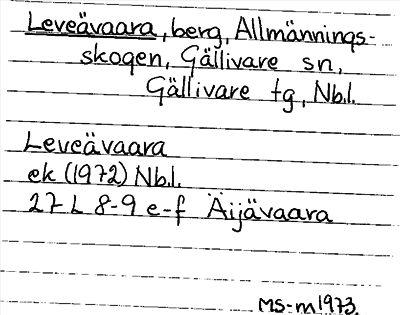 Leveävaara, berg, Allmännings-
skogen, Gällivare sn,
Gällivare tg, Nbl.
Leveävaara
ek (1972) Nbl.
27 L 8-9 e-f Äijävaara
MS-m 1973.